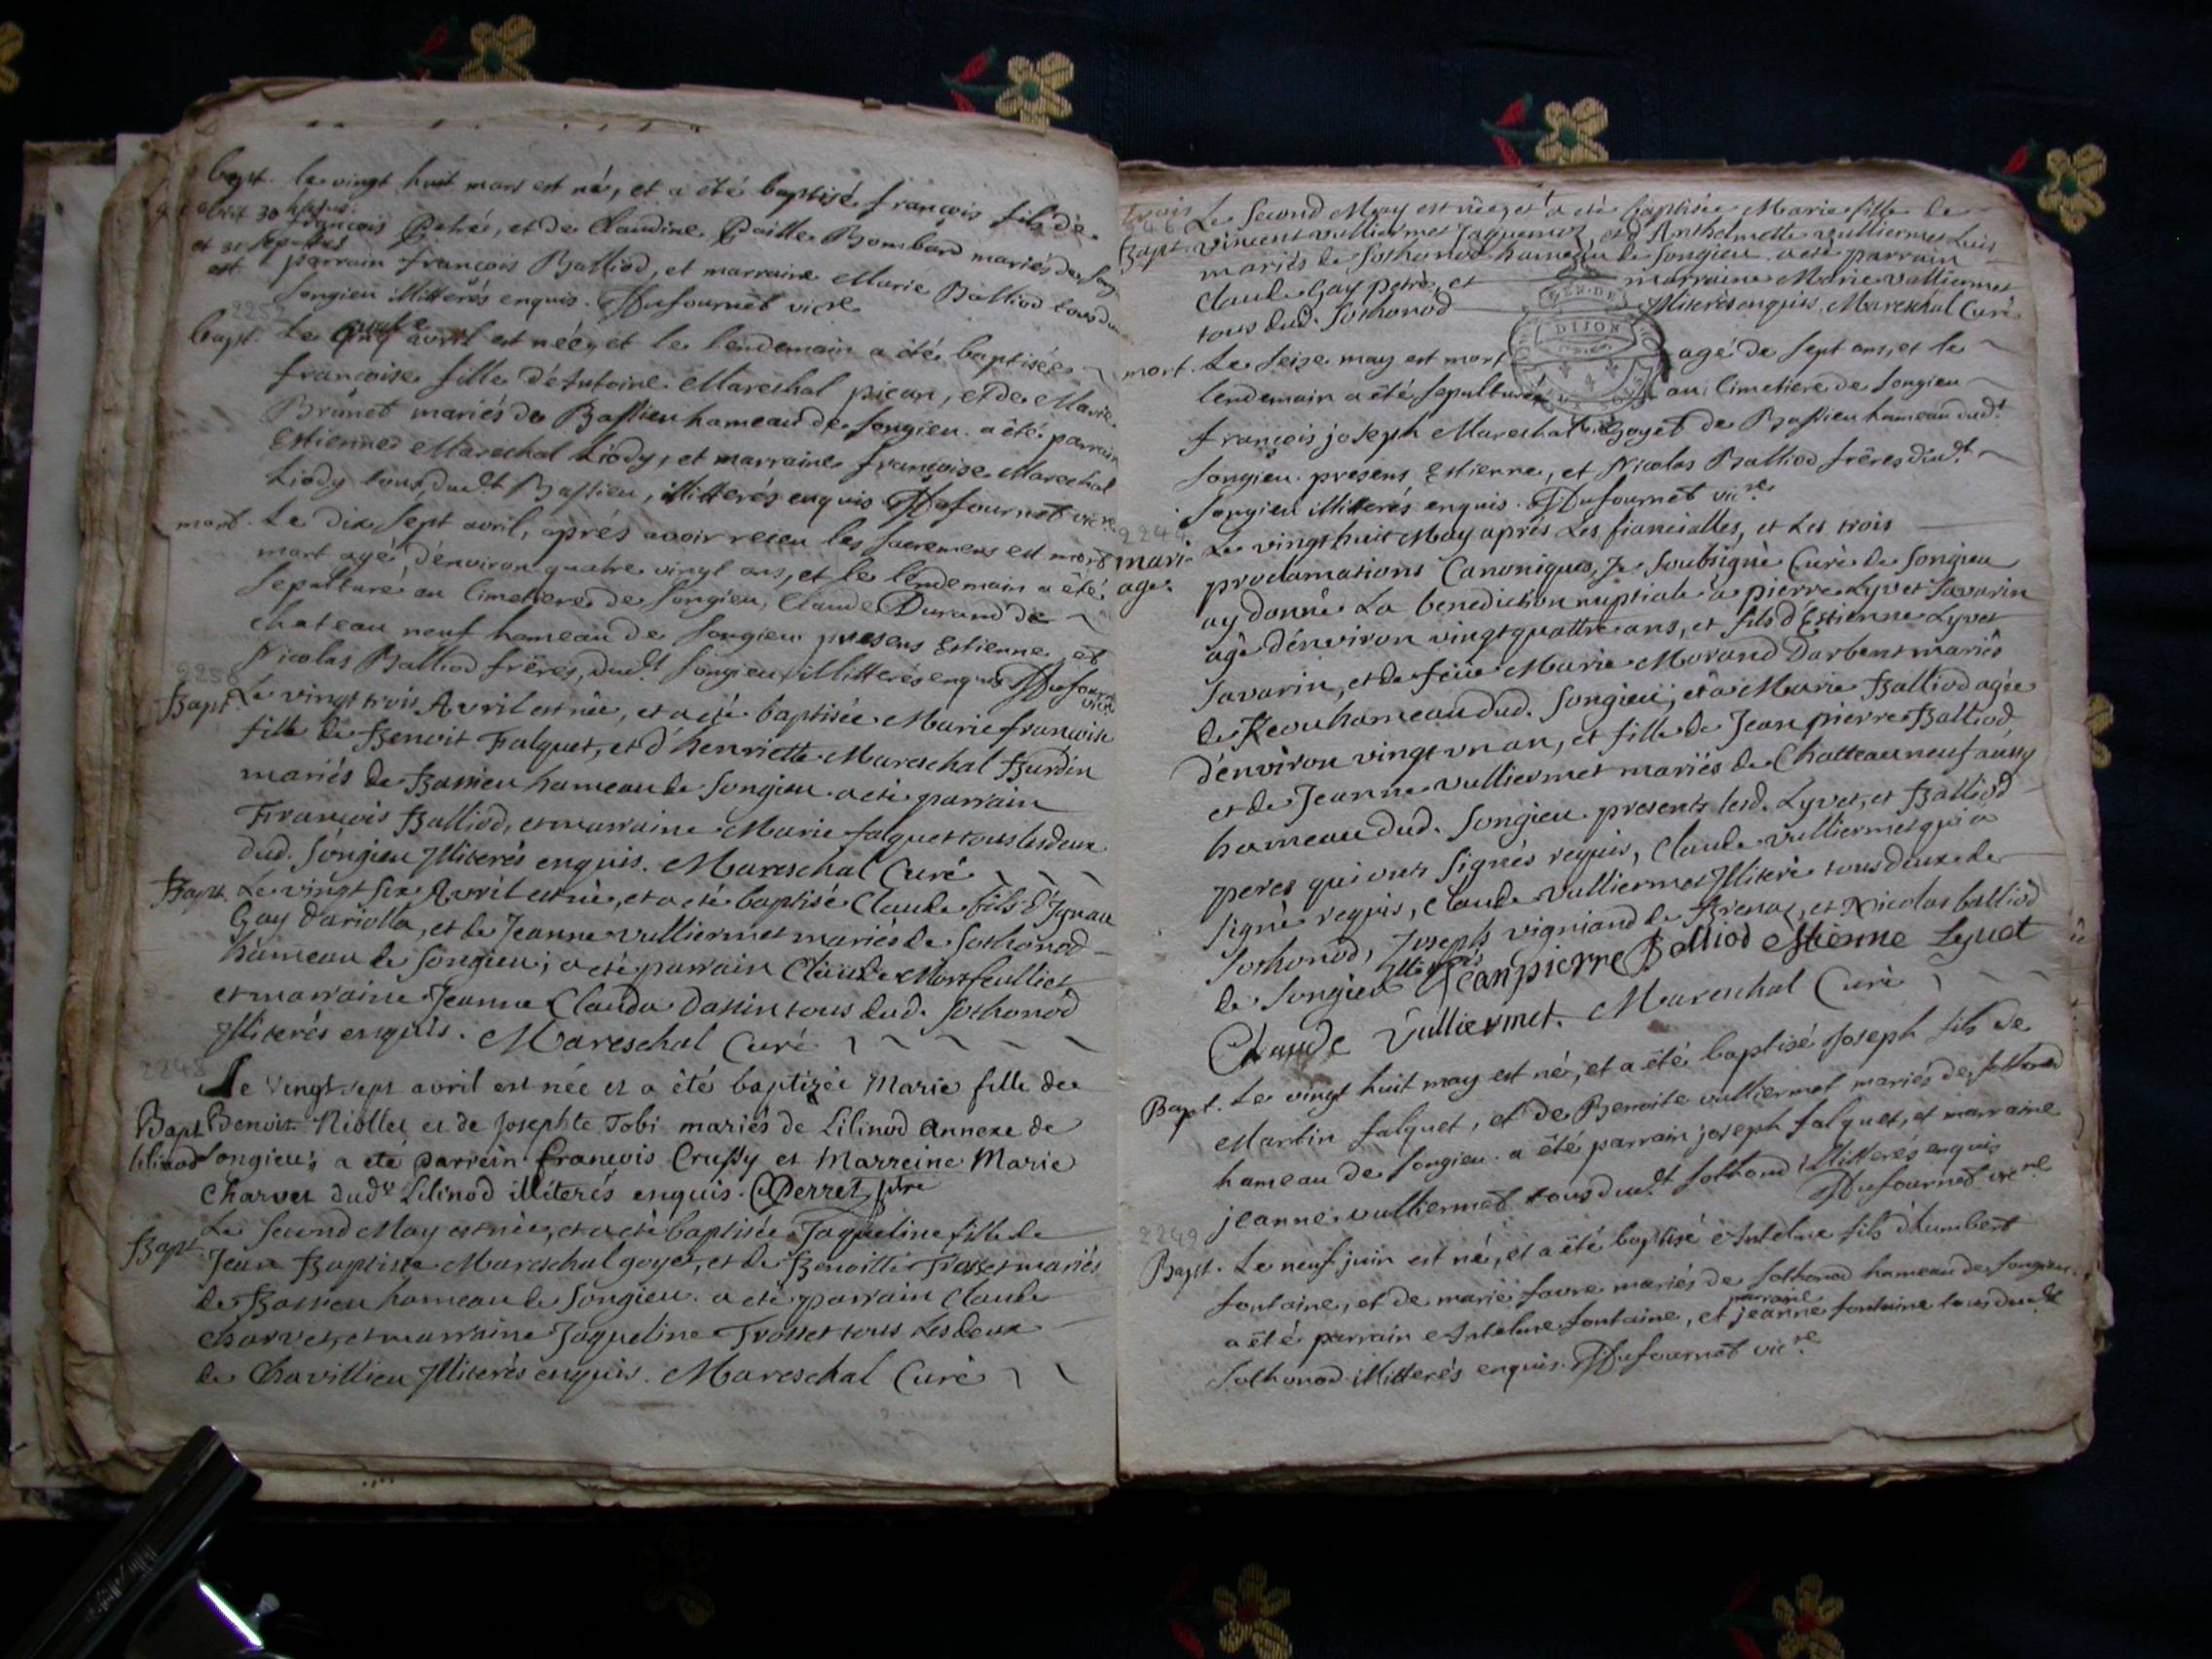 bapt. le vingt huit mars est né, et a été baptisé françois fils de
françois Petré, et de Claudine Paille Bombard mariés de Song
est parrain françois Balliod, et marraine Marie Balliod tous du
Songieu illitterés enquis. Dufournet vicre
2252
bapt. Le avril est néé, et le lendemain a été baptisée
francoise fille d'Antoine Mareschal pican, et de Marie
Brunet mariés de Bassieu hameau de Songieu. a été parrain
Estienne Mareschal Liody, et marraine françoise Mareschal
Liody tous dudt Bassieu, illitterés enquis Dufournet vicre
mort. Le dix sept avril, aprés avoir receu les sacremens est mort
mort agé d'environ quatre vingt ans, et le lendemain a été
sepulturé au Cimetiere de Songieu, Claude Durand de
chateau neuf hameau de Songieu presens Estienne, et
Nicolas Balliod frères, dudt Songieu illitterés enquis Dufournet vicre
Bapt. Le vingt trois Avril est née, et a eté baptisée Marie francoise
fille de Benoit Falquet, et d'henriette Mareschal Burdin
mariés de Bassieu hameau de Songieu a eté parrain
François Balliod, et marraine Marie falquet tous les deux
dud. Songieu Illiterés enquis. Mareschal Curé
Bapt. Le vingt six Avril est né, et a eté baptisé Claude fils d'Ignace
Gay Dariolla, et de Jeanne Vulliermet mariés de Sothonod
hameau de Songieu; a eté parrain Claude Montfeulliet
et marraine Jeanne Clauda Dassin tous dud. Sothonod
Illiterés enquis. Mareschal Curé
2248
Le Vingt sept avril est née et a été baptizée Marie fille de
Bapt Benoit Niollet et de Josephte Tobi mariés de Lilinod Annexe de
lilinod Songieu; a eté parrein francois Crussy et Marreine Marie
Charvet dudt Lilinod illiterés enquis. Perret ptre
Bapt. Le Second May est née, et a eté baptisée Jaqueline fille de
Jean Baptiste Mareschal goyet, et de Benoitte Trosset mariés
de Bassieu hameau de Songieu. a eté parrain Claude
Charvet, et marraine Jaqueline Trosset tous Les deux
de Chavillieu Illiterés enquis. Mareschal Curé
trois
Le Second May est née, et a eté baptisée Marie fille de
Bapt. Vincent Vulliermet Jaquemoz, et d'Anthelmette Vulliermet
mariés de Sothonod hameau de Songieu a eté parrain
Claude Gay petré, et marraine Marie Vulliermet
tous dud. Sothonod Illiterés enquis. Mareschal Curé
GEN. DE
DIJON
mort. Le seize may est mort agé de sept ans, et le
lendemain a été sepulturé au Cimetiere de Songieu
françois joseph Mareschal Goyet de Bassieu hameau dudt
Songieu. presens Estienne, et Nicolas Balliod frères dudt
Songieu illitterés enquis. Dufournet vicre
2244
mariage. Le vingt huit May aprés Les fianciailles, et Les trois
proclamations Canoniques, Je soubsigné Curé de Songieu
ay donné La benediction nuptiale à pierre Lyvet Savarin
agé d'environ vingt quattre ans, et fils d'Estienne Lyvet
Savarin, et de feüe Marie Morand Darbent mariés
de Reou hameau dud. Songieu; et à Marie Balliod agée
d'environ vingt un an, et fille de Jean pierre Balliod
et de Jeanne Vulliermet mariés de Chatteauneuf aussy
hameau dud. Songieu presents lesd. Lyvet, et Balliod
peres qui ont signés requis, Claude Vulliermet qui a
signé requis, Claude Vulliermet Illiteré tous deux de
Sothonod, Joseph vigniand de Brenaz, et Nicolas balliod
de Songieu Illiterés Jean pierre Balliod Estienne Leyuet
Claude Vulliermet. Mareschal Curé
Bapt. Le vingt huit may est né, et a été baptisé Joseph fils de
Martin falquet, et de Benoite vulliermet mariés de Sothonod
hameau de Songieu. a été parrain joseph falquet, et marraine
jeanne vulliermet tous dudt Sothonod illitterés enquis
Dufournet vicre
2249
Bapt. Le neuf juin est né, et a été baptisé Antelme fils d'humbert
fontaine, et de marie favre mariés de Sothonod hameau de Songieu.
a été parrain Antelme fontaine, et marraine jeanne fontaine tous dudt
Sothonod illitterés enquis. Dufournet vicre